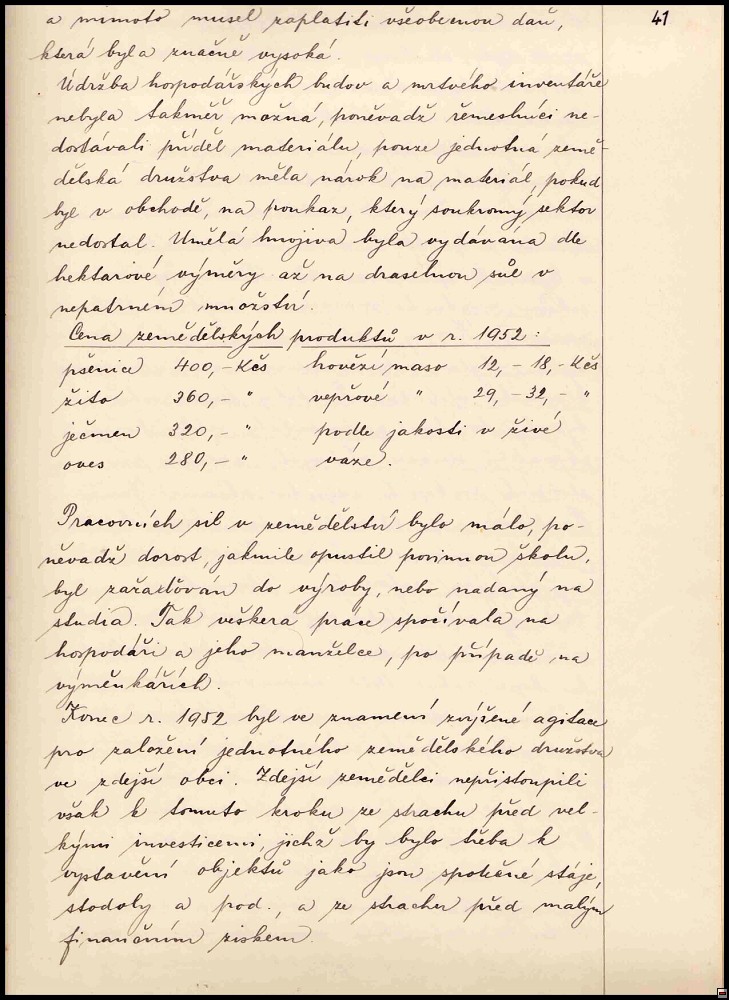 41
a mimoto musel zaplatiti všeobecnou daň,
která byla značně vysoká.
Údržba hospodářských budov a mrtvého inventáře
nebyla takměř možná, poněvadž řemeslníci ne-
dostávali příděl materiálu, pouze jednotná země-
dělská družstva měla nárok na materiál, pokud
byl v obchodě, na poukaz, který soukromý sektor
nedostal. Umělá hnojiva byla vydávána dle
hektarové výměry až na draselnou sůl v
nepatrném množství.
Cena zemědělských produktů v r. 1952:
pšenice 400,- Kčs hovězí maso 12,- 18,- Kčs
žito 360,- " vepřové " 29,- 32,- "
ječmen 320,- " podle jakosti v živé
oves 280,- " váze.
Pracovních sil v zemědělství bylo málo, po-
něvadž dorost, jakmile opustil povinnou školu,
byl zařaďován do výroby, nebo nadaný na
studia. Tak veškerá práce spočívala na
hospodáři a jeho manželce, po případě na
výměnkářích.
Konec r. 1952 byl ve znamení zvýšené agitace
pro založení jednotného zemědělského družstva
ve zdejší obci. Zdejší zemědělci nepřistoupili
však k tomuto kroku ze strachu před vel-
kými investicemi, jichž by bylo třeba k
vystavění objektů jako jsou společné stáje,
stodoly a pod., a ze strachu před malým
finančním ziskem.